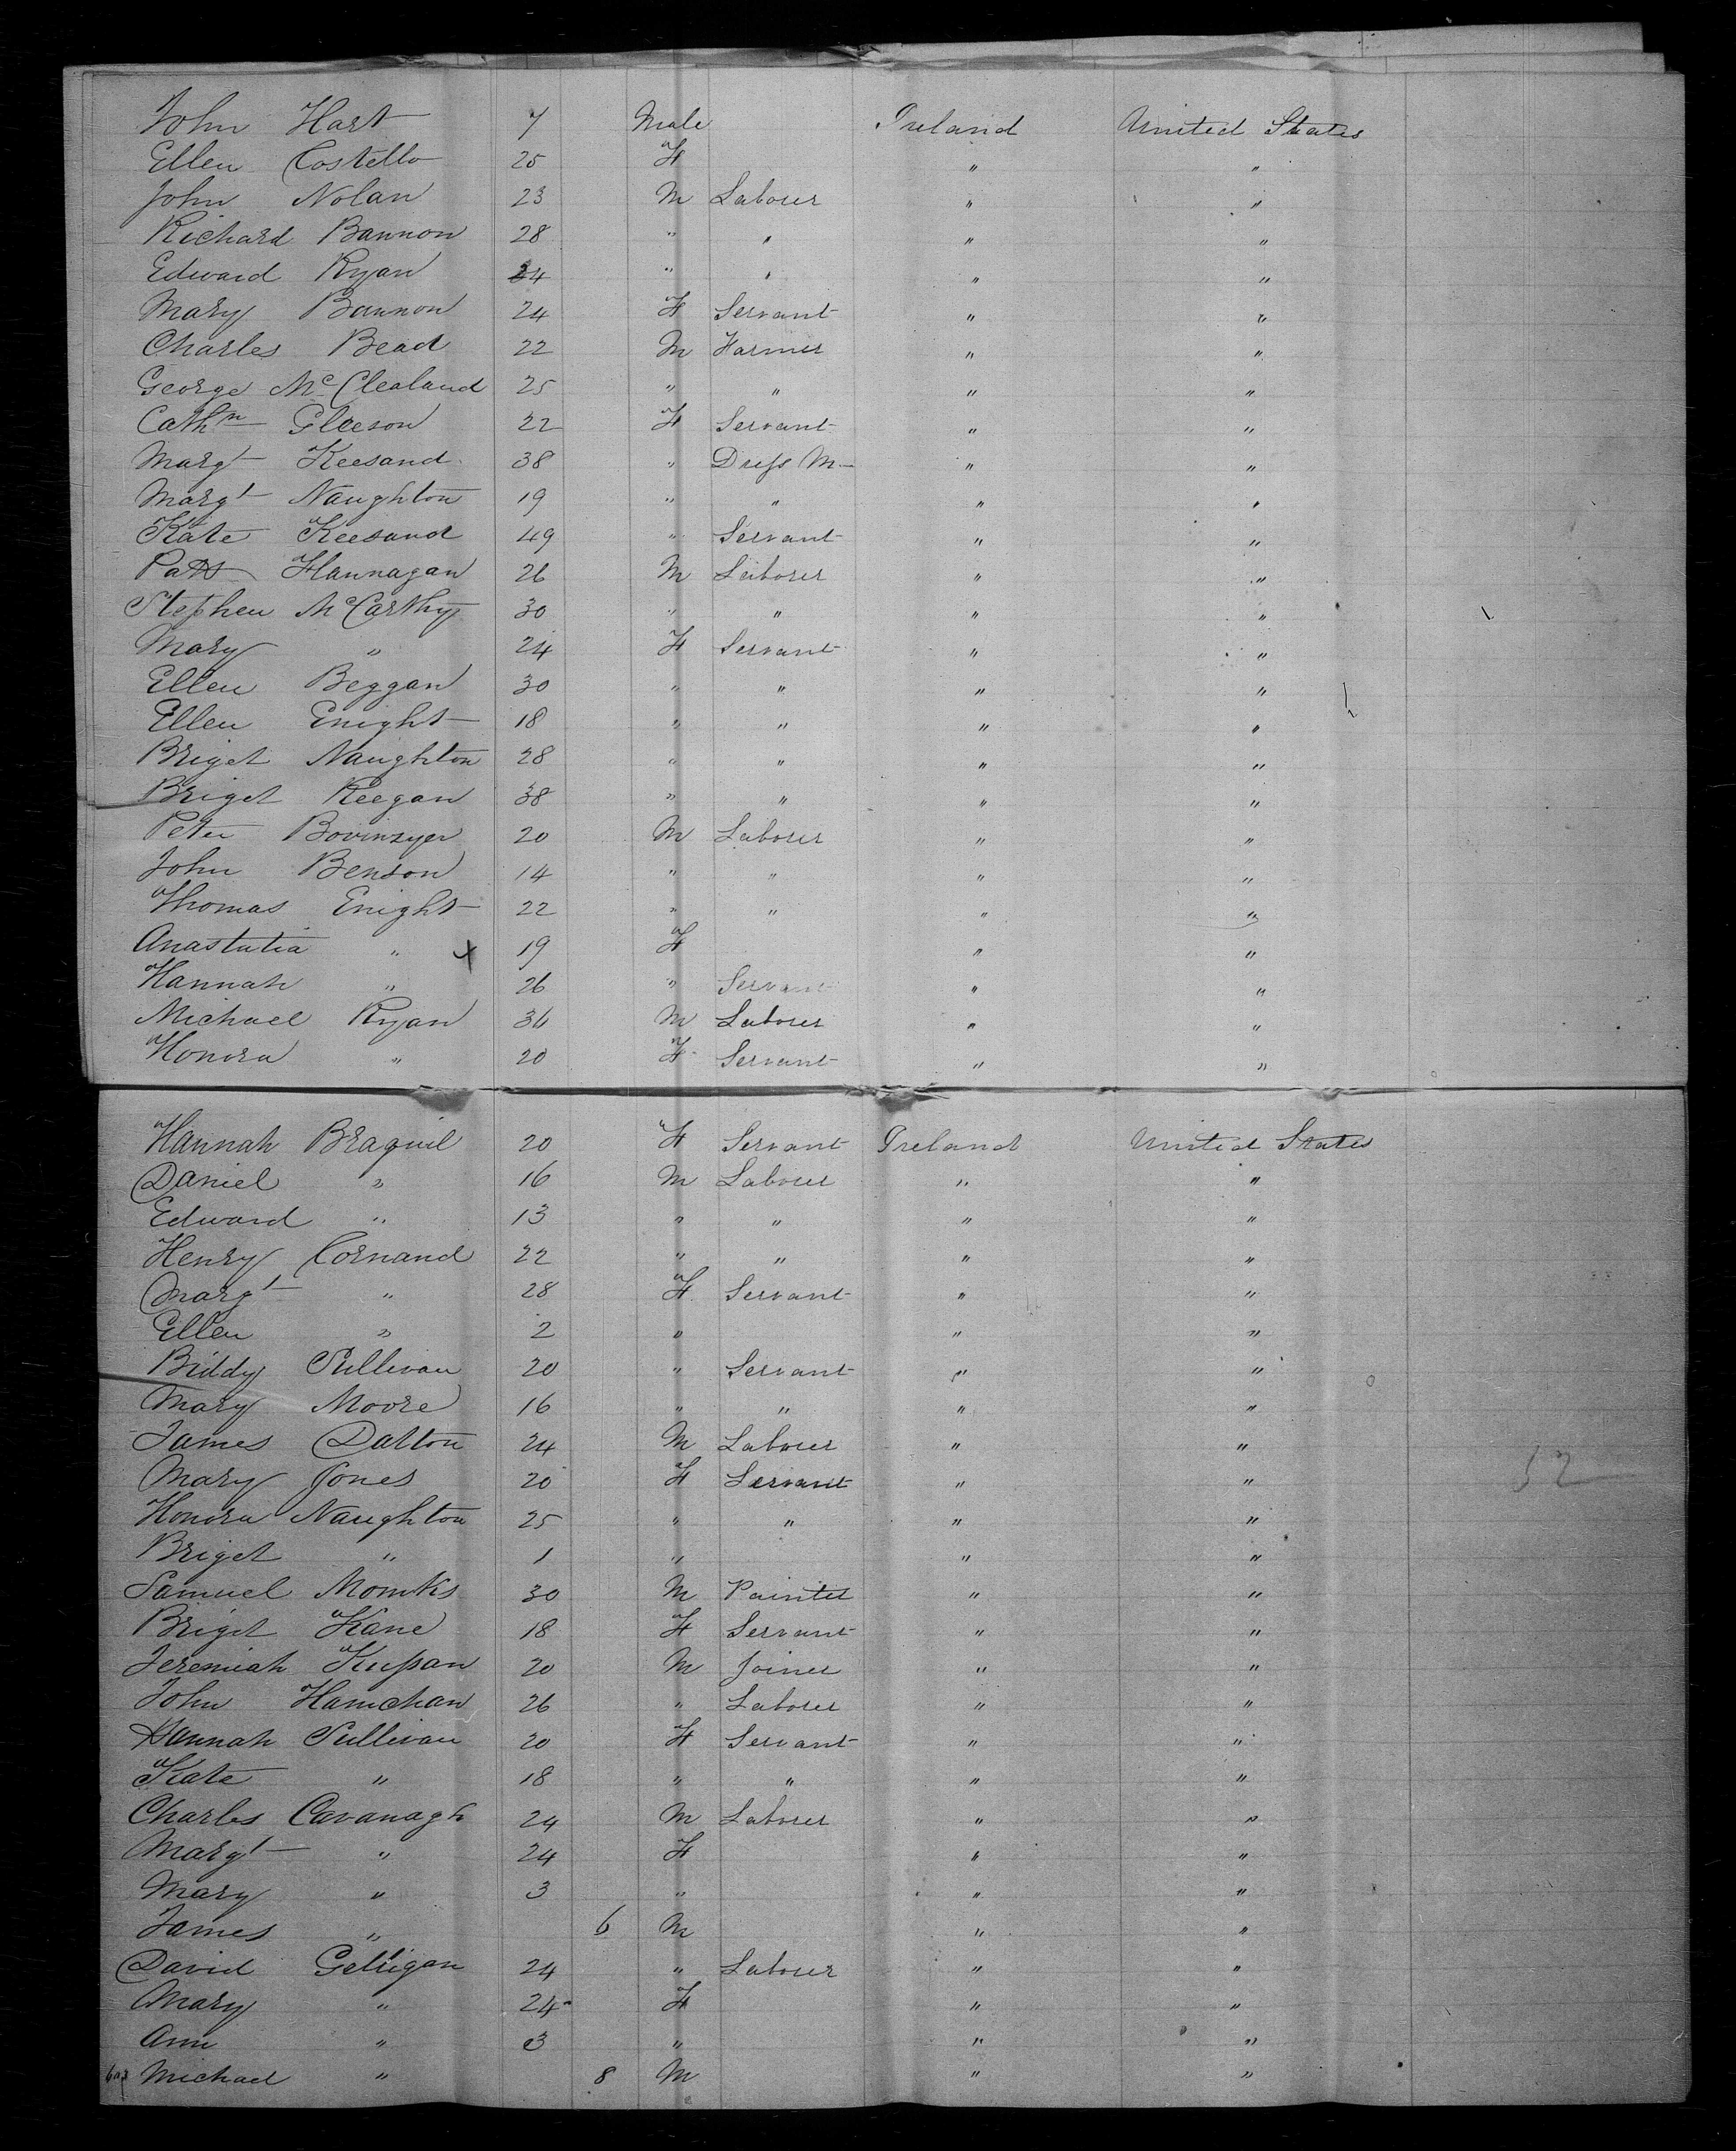 John Hart 7 Male Ireland United States
Ellen Costello 25 F " "
John Nolan 23 M Laborer " "
Richard Bannon 28 " " " "
Edward Ryan 24 " " " "
Mary Bannon 24 F Servant " "
Charles Bead 22 M Farmer " "
George McClealand 25 " " " "
Cathn Gleeson 22 F Servant " "
Margt Keesand 38 " Dress M " "
Margt Naughton 19 " " " "
Kate Keesand 49 " Servant " "
Patk Flannagan 26 M Laborer " "
Stephen McCarthy 30 " " " "
Mary " 24 F Servant " "
Ellen Beggan 30 " " " "
Ellen Enight 18 " " " "
Briget Naughton 28 " " " "
Briget Keegan 38 " " " "
Peter 20 M Laborer " "
John Benson 14 " " " "
Thomas Enight 22 " " " "
Anastatia " x 19 F " "
Hannah " 26 " Servant " "
Michael Ryan 36 M Laborer " "
Honora " 20 F Servant " "
Hannah Braquil 20 F Servant Ireland United States
Daniel " 16 M Laborer " "
Edward " 13 " " " "
Henry Cornand 22 " " " "
Margt " 28 F Servant " "
Ellen " 2 " " "
Biddy Sullivan 20 " Servant " "
Mary Moore 16 " " " "
James Dalton 24 M Laborer " "
Mary Jones 20 F Servant " "
Honora Naughton 25 " " " "
Briget " 1 " " "
Samuel Momks 30 M Painter " "
Briget Kane 18 F Servant " "
Jeremiah 20 M Joiner " "
John Hanichan 26 " Laborer " "
Hannah Sullivan 20 F Servant " "
Kate " 18 " " " "
Charles Cavanagh 24 M Laborer " "
Margt " 24 F " "
Mary " 3 " " "
James " 6 M " "
David Geligan 24 " Laborer " "
Mary " 24 F " "
Ann " 3 " " "
Michael " 8 M " "